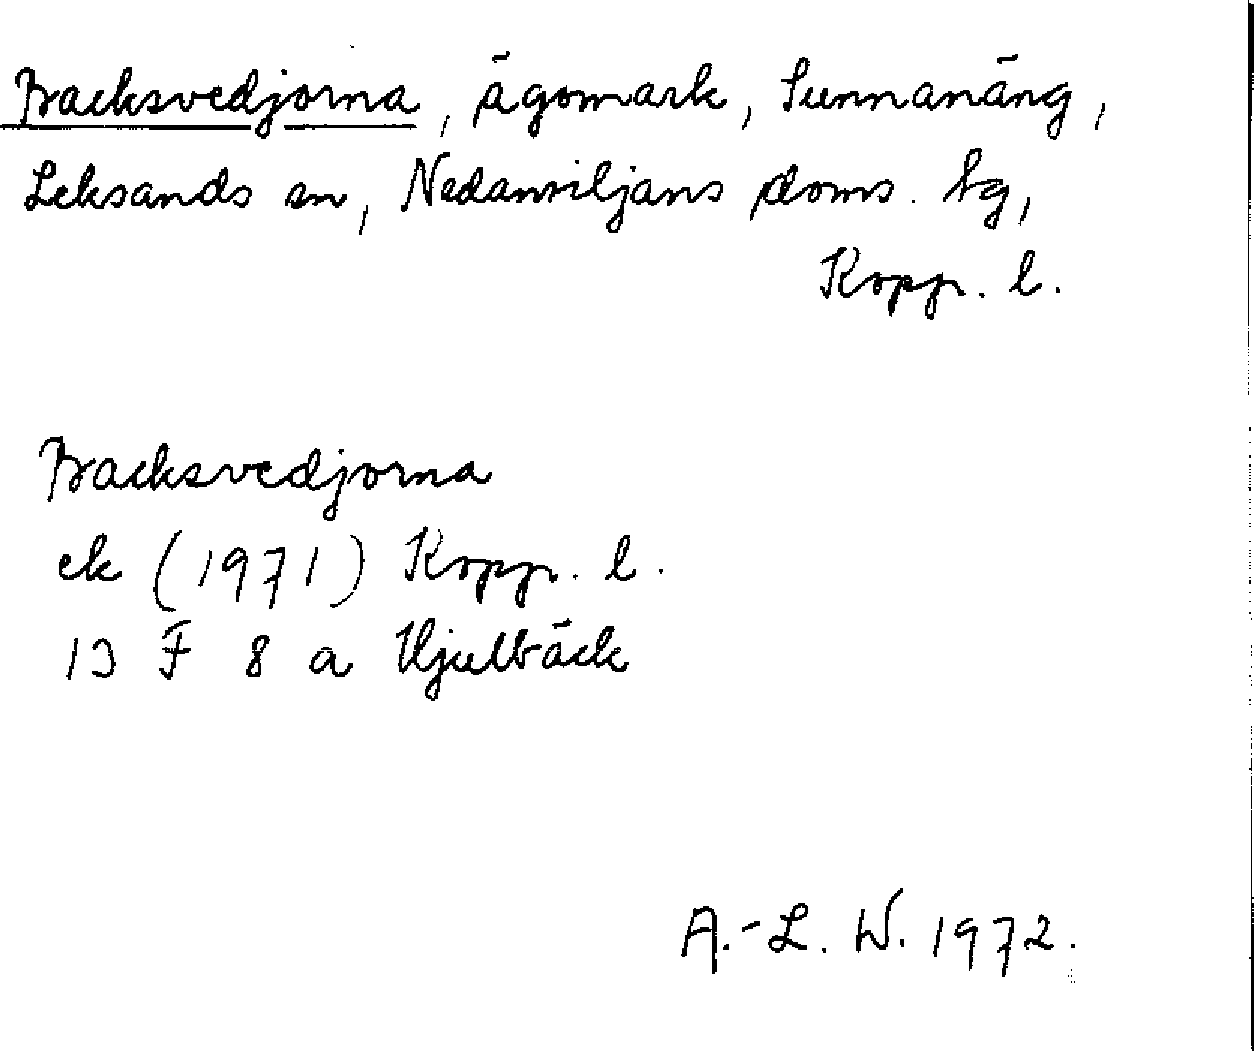 Backsvedjorna, ägomark, Sunnanäng,
Leksands sn, Nedansiljans doms. tg,
Kopp. l.
Backsvedjorna
ek (1971) Kopp. l.
13 F 8 a Hjulbäck
A.-L. W. 1972.